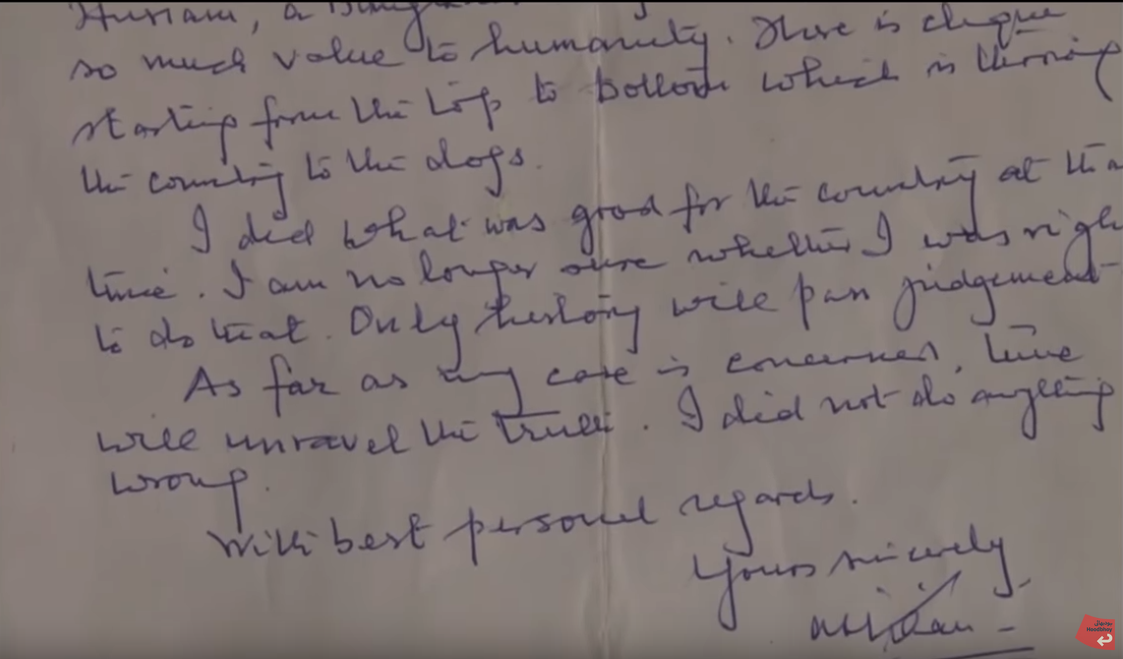 Hussain, a
so much value to humanity. There is clique
starting from the top to bottom which is throwing
the country to the dogs.
I did what was good for the country at tha
time. I am no longer sure whether I was righ
to do that. Only history will pass judgement
As far as my case is concerned, time
will unravel the truth. I did not do anything
wrong.
With best personal regards.
Yours sincerely,